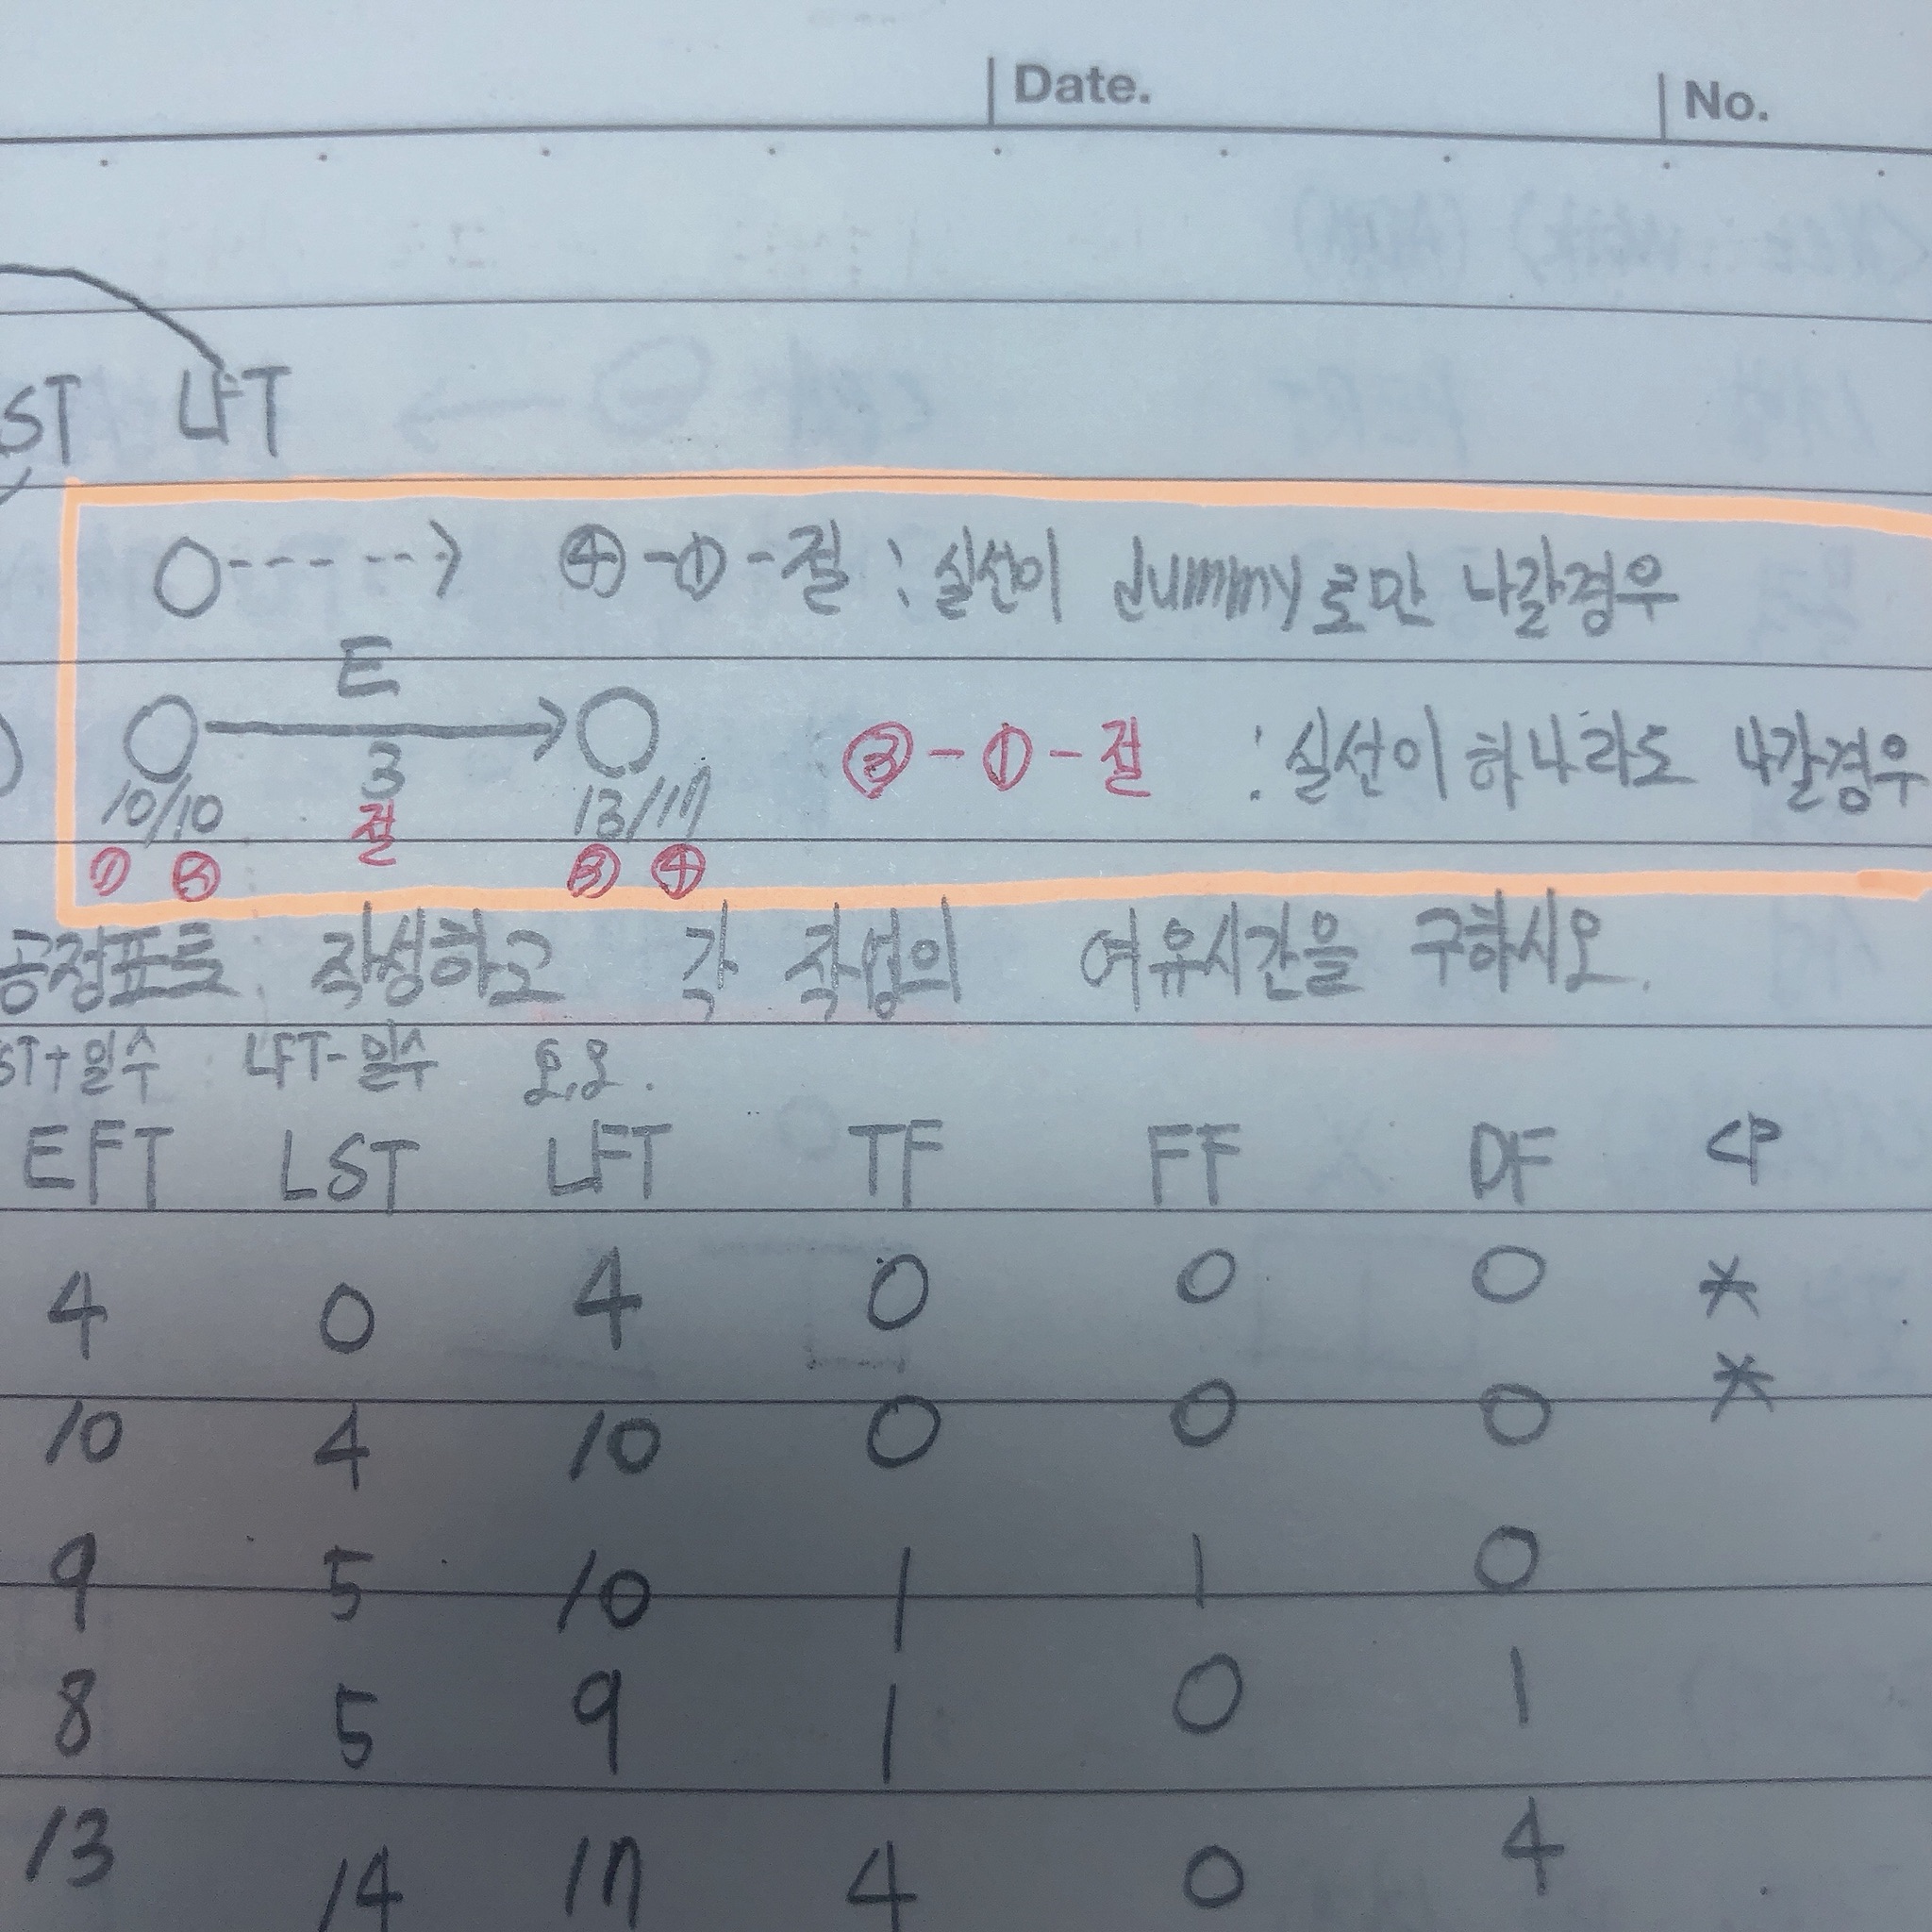 Date. No.
ST LFT
④-①-절 : 실선이 dummy로만 나갈경우
E
3
10/10 절 13/17
③-①-절 : 실선이 하나라도 나갈경우
① ③ ④
공정표를 작성하고 각 작업의 여유시간을 구하시오.
ST+일수 LFT-일수 오.오.
EFT LST LFT TF FF DF CP
4 0 4 0 0 0 *
10 4 10 0 0 0 *
9 5 10 1 1 0
8 5 9 1 0 1
13 14 17 4 0 4